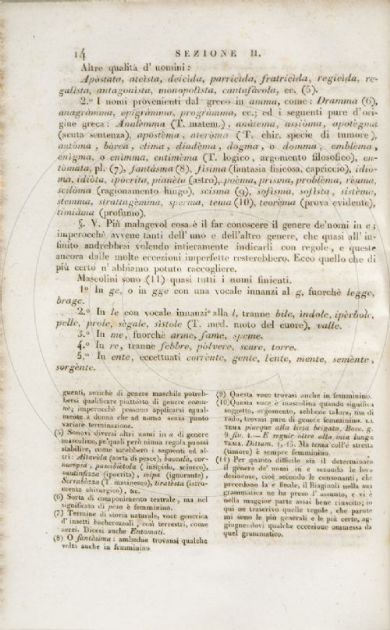 14 SEZIONE II.
Altre qualità d' nomini :
Apostata, ateista, deicida, parricida, fratricida, regicida, re-
galista, antagonista, monopolista, cantafavola, ec. (5).
2.° I nomi provenienti dal greco in amma, come : Dramma (6),
anagrámma, epigrámma, prográmma, ec.; ed i seguenti pure d'ori-
gine greca : Anatema (T. matem.), anátema, assióma, apotégma
(acuta sentenza), apostèma, ateròma (T. chir. specie di tumore),
bórea, clima, diadèma, dogma, o domma, emblèma,
enigma, o enimma, entimèma (T. logico, argomento filosofico), en-
tòmata, pl. (7), fantásma (8), fisima (fantasia fisicosa, capriccio), idio-
ma, idiòta, ipòcrita, pianèta (astro), poèma, prisma, problèma, rèuma,
scilòma (ragionamento lungo), scisma (9), sofisma, sofista, sistèma,
stemma, stratagèmma, sperma, tema (10), teorèma (prova evidente),
timiàma (profumo).
§. V. Più malagevol cosa è il far conoscere il genere de'nomi in e ;
imperocchè avvene tanti dell' uno e dell'altro genere, che quasi all' in-
finito andrebbesi volendo intieramente indicarli con regole, e queste
ancora dalle molte eccezioni imperfette resterebbero. Ecco quello che di
più certo n' abbiamo potuto raccogliere.
Mascolini sono (11) quasi tutti i nomi finienti.
1.° In ge, o in gge con una vocale innanzi al g, fuorchè legge,
brage.
2.° In le con vocale innanzi alla l, tranne bile, indole, ipèrbole,
pelle, prole, sègale, sistole (T. med. moto del cuore), valle.
3.° In me, fuorchè arme, fame, speme.
4.° In re, tranne febbre, polvere, scure, torre.
5.° In ente, eccettuati corrènte, gente, lente, mente, semènte,
sorgènte.
guenti, enriché di genere maschile potreb-
bersi qualificare piuttosto di genere comu-
ne; imperocchè possono applicarsi egual-
mente a donna che ad uomo senza punto
variare terminazione.
(5) Sonovi diversi altri nomi in a di genere
mascolino, pe'quali però niuna regola puossi
stabilire, come sarebbero i seguenti ed al-
tri: Altavela (sorta di pesce), baccalà,
(insipido, scimuco),
(ipocrita), (ignorante),
(T. marinesc), tirátesta (istru-
mento chirurgico), ec.
(6) Sorta di componimento teatrale, ma nel
significato di peso è femminino.
(7) Termine di storia naturale, voce generica
d' insetti bacherozzoli, così terrestri, come
aerei. Dicesi anche Entomati.
(8) O fantàsima : ambedue trovansi qualche
volta anche in femminino
(9) Questa voce trovasi anche in femminino.
(10) Questa voce è mascolina quando significa
soggetto, argomento, sebbene talora, ma di
rado, trovasi pure di genere femminino. La
tema piacque alla lieta brigata, Bocc. g.
9 fin. 1. — E seguir oltre alla mia lunga
tema, Dittam. 4. 15. Ma tema coll'è stretta
(timore) è sempre femminino.
(11) Per quanto difficile sia il determinare
il genere de' nomi in e secondo le lor
desinenze, cioè secondo le consonanti, che
precedono la e finale, il Biagioli nella sua
grammatica ne ha preso l' assunto, e vi è
nella maggior parte assai bene riuscito; io
qui ne trascrivo quelle regole, che parute
mi sono le più generali e le più certe, ag-
giugnendovi qualche eccezione ommessa da
quel grammatico.